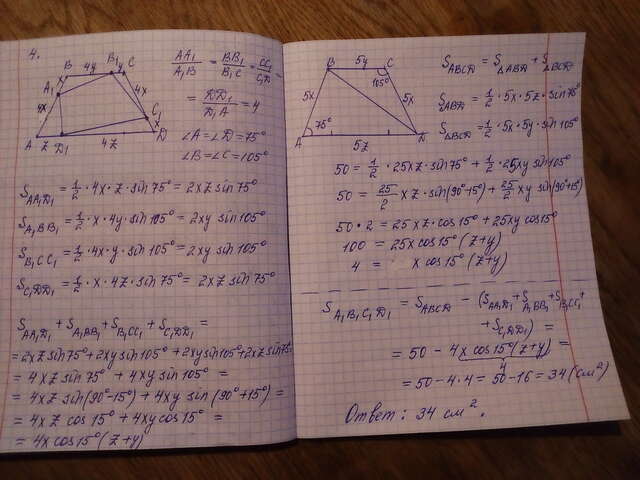 4.
B 4y B₁ y C
x
A₁
4x
4x
C₁
x
A z D₁ 4z D
AA₁/A₁B = BB₁/B₁C = CC₁/C₁D =
= DD₁/D₁A = 4
∠A = ∠D = 75°
∠B = ∠C = 105°
S_AA₁D₁ = 1/2 · 4x · z · sin 75° = 2xz sin 75°
S_A₁BB₁ = 1/2 · x · 4y · sin 105° = 2xy sin 105°
S_B₁CC₁ = 1/2 · 4x · y · sin 105° = 2xy sin 105°
S_C₁DD₁ = 1/2 · x · 4z · sin 75° = 2xz sin 75°
S_AA₁D₁ + S_A₁BB₁ + S_B₁CC₁ + S_C₁DD₁ =
= 2xz sin 75° + 2xy sin 105° + 2xy sin 105° + 2xz sin 75°
= 4xz sin 75° + 4xy sin 105° =
= 4xz sin(90°-15°) + 4xy sin(90°+15°) =
= 4xz cos 15° + 4xy cos 15° =
= 4x cos 15° (z+y)
B 5y C
105°
5x
5x
A 75° D
5z
S_ABCD = S_△ABD + S_△BCD
S_△ABD = 1/2 · 5x · 5z · sin 75°
S_△BCD = 1/2 · 5x · 5y · sin 105°
50 = 1/2 · 25xz · sin 75° + 1/2 · 25xy sin 105°
50 = 25/2 xz · sin(90°+15°) + 25/2 xy sin(90°+15°)
50 · 2 = 25xz · cos 15° + 25xy cos 15°
100 = 25x cos 15° (z+y)
4 = x cos 15° (z+y)
S_A₁B₁C₁D₁ = S_ABCD - (S_AA₁D₁ + S_A₁BB₁ + S_B₁CC₁ +
+ S_C₁DD₁) =
= 50 - 4x cos 15° (z+y) =
4
= 50 - 4 · 4 = 50 - 16 = 34 (см²)
Ответ: 34 см².